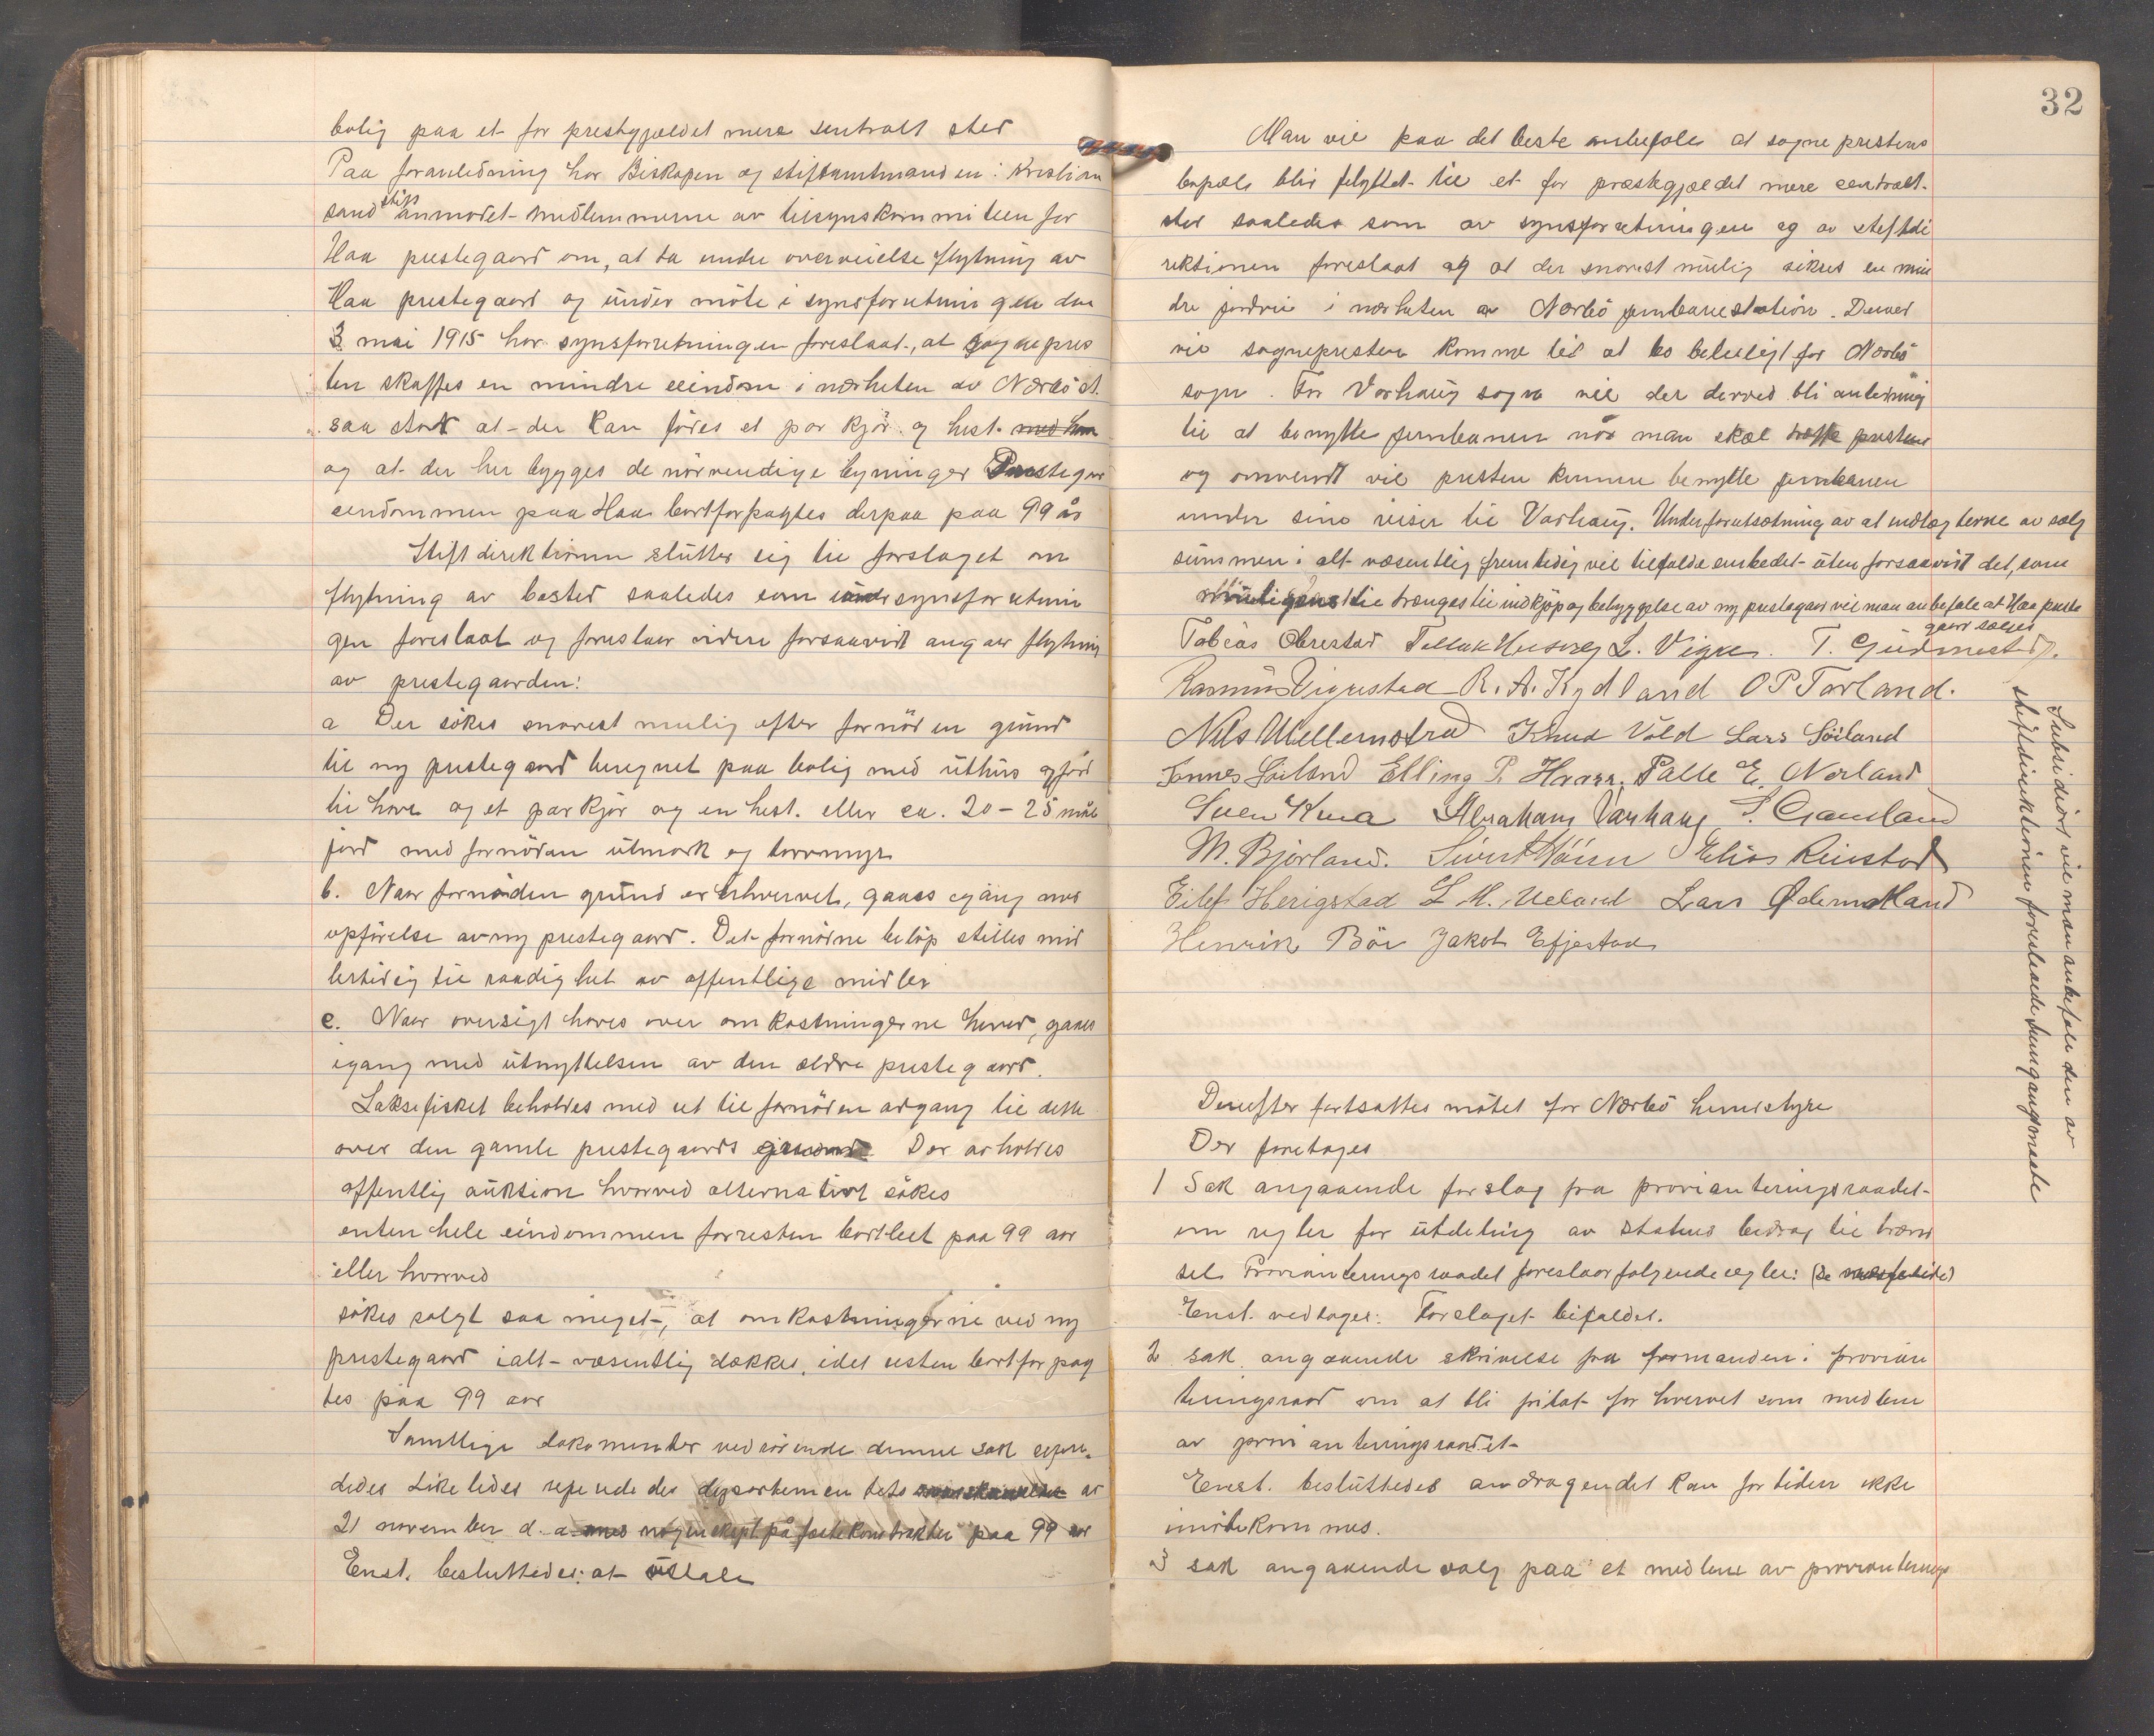 bolig paa et for prestegjældet mere sentralt sted
Paa foranledning har Biskopen og stiftamtmanden i Kristian
sand stift anmodet medlemmerne av tilsynskommiteen for
Haa prestegaard om, at ta under overveielse flytning av
Haa prestegaard og under møte i synsforretningen den
3 mai 1915 har synsforretningen foreslaat, at sognepres
ten skaffes en mindre eiendom i nærheten av Nærbö st.
saa stor at der kan föres et par kjør og hest
og at der her bygges de nörvendige byninger Prestegar
eendommen paa Haa bortforpagtes derpaa paa 99 år
Stiftdirektionen slutter sig til forslaget om
flytning av bosted saaledes som synsforretnin
gen foreslaat og foreslaar videre forsaavidt angaar flytning
av prestegaarden:
a Der sökes snarest mulig efter fornöden grund
til ny prestegaard beregnet paa bolig med uthus og jord
til have og et par kjör og en hest. eller ca. 20 – 25 mål
jord med fornöden utmark og torvmyr
b. Naar fornöden grund er erhvervet, gaaes igang med
opförelse av ny prestegaard. Det fornödne belöp stilles mid
lertidig til raadighet av offentlige midler
c. Naar oversigt haves over omkostningerne herved, gaaes
igang med utnyttelsen av den ældre prestegaard.
Laksefisket beholdes med ret til fornöden adgang til dette
over den gamle prestegaards grund. Der avholdes
offentlig auktion hvorved alternativt sökes
enten hele eindommen forresten bortleet paa 99 aar
eller hvorved
sökes solgt saa meget, at omkostningerne ved ny
prestegaard ialt væsentlig dækkes, idet resten bortforpag
tes paa 99 aar
Samtlige dokumenter vedrörende denne sak refere
dedes Likeledes refereredes departementets av
21 november d. a. paa 99 aar
Enst. besluttedes: at uttale
32
Man vil paa det beste anbefale at sogneprestens
bopæl blir flyttet til et for præstegjældet mere centralt
sted saaledes som av synsforretningen og av stiftdi
rektionen foreslaat og at der snarest mulig sikres en min
dre jordvei i nærheten av Nærbö jernbanestation. Derved
vil sognepresten komme til at bo beleiligt for Nærbö
sogn. For Varhaug sogn vil der derved bli anledning
til at benytte jernbanen når man skal træffe presten
og omvendt vil presten kunne benytte jernbanen
under sine reiser til Varhaug. Under forutsætning av at indtægterne av salg
summen i alt væsentlig fremtidig vil tilfalde embedet uten forsaavidt det, som
nödvendigens til trænges til indkjøp og bebyggelse av ny prestegaar vil man anbefale at Haa preste
gaard sælges
Tobias Obrestad Tollak Husveg L. Vigre. T. Gudmestad.
Rasmus Vigrestad R. A. Kydland O P Torland.
Nils Mellemstrand Knud Vold Lars Söiland
Tønnes Söiland Elling P. Haarr. Palle E. Norland
Sven Kvia Abraham Varhaug S. Gausland
M. Bjorland. Sivert Höien Elias Reiestad
Eilef Herigstad L M. Ueland Lars Ødemotland
Henrik Böe Jakob Efjestad
Subsidiært vil man anbefale den av
stiftdirektionen foreslaaede fremgangsmaate
Derefter fortsattes mötet for Nærbö herredstyre
Der foretages
1 Sak angaaende forslag fra provianteringsraadet
om regler for utdeling av statens bidrag til trænd
sel. Provianteringsraadet foreslaar følgende regler:
Enst. vedtoges: Forslaget bifaldes.
2 sak angaaende skrivelse fra formanden i provian
teringsraad om at bli fritat for hvervet som medlem
av provianteringsraadet
Enst. besluttedes andragendet kan for tiden ikke
imötekommes.
3 sak angaaende valg paa et medlem av provianterings